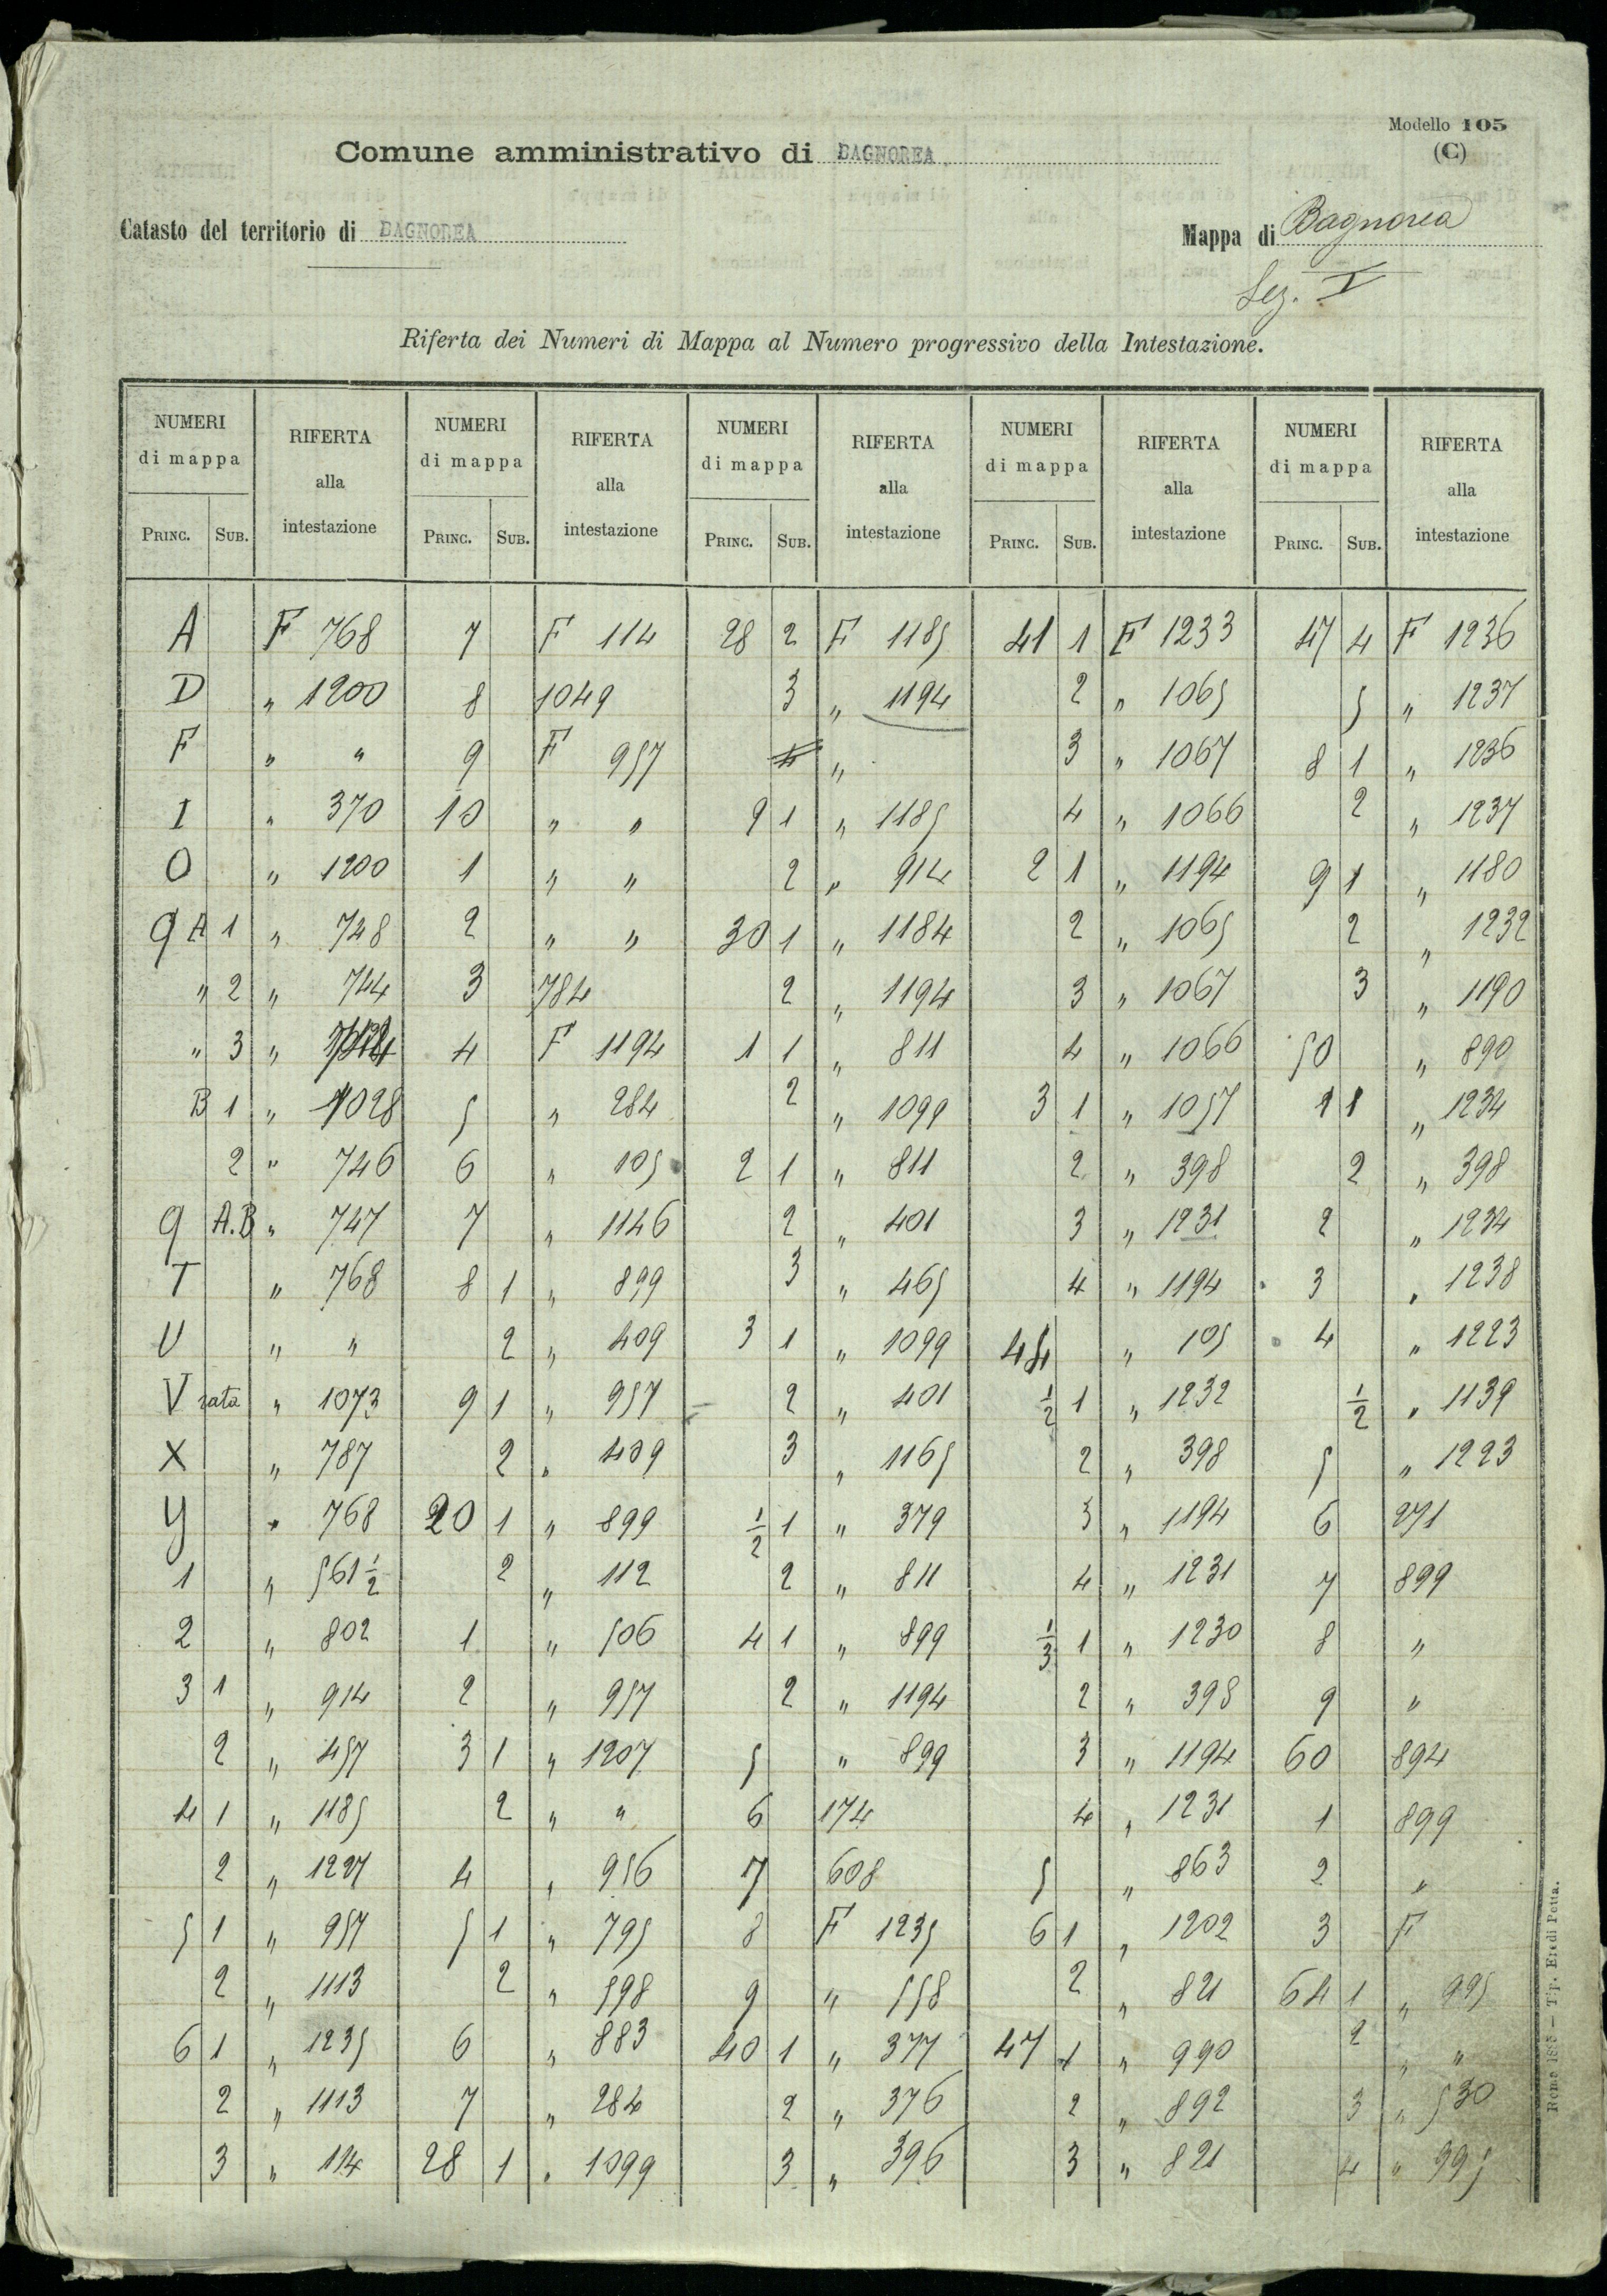 Modello 105
(C)
Comune amministrativo di BAGNOREA
Catasto del territorio di BAGNOREA
Mappa di Bagnorea
Sez. I
Riferta dei Numeri di Mappa al Numero progressivo della Intestazione.
NUMERI di mappa RIFERTA alla intestazione NUMERI di mappa RIFERTA alla intestazione NUMERI di mappa RIFERTA alla intestazione NUMERI di mappa RIFERTA alla intestazione NUMERI di mappa RIFERTA alla intestazione
PRINC. SUB. PRINC. SUB. PRINC. SUB. PRINC. SUB. PRINC. SUB.
A F 768 7 F 114 28 2 F 1185 41 1 F 1233 47 4 F 1236
D " 1200 8 1049 3 " 1194 2 " 1065 5 " 1237
F " " 9 F 957 4 " 3 " 1067 8 1 " 1236
I " 370 10 " " 9 1 " 1185 4 " 1066 2 " 1237
O " 1200 1 " " 2 " 914 2 1 " 1194 9 1 " 1180
Q A 1 " 748 2 " " 30 1 " 1184 2 " 1065 2 " 1232
" 2 " 744 3 784 2 " 1194 3 " 1067 3 " 1190
" 3 " 4 F 1194 1 1 " 811 4 " 1066 50 " 890
B 1 " 1028 5 " 284 2 " 1099 3 1 " 1057 1 1 " 1234
2 " 746 6 " 105 2 1 " 811 2 " 398 2 " 398
Q A.B " 747 7 " 1146 2 " 401 3 " 1231 2 " 1234
T " 768 8 1 " 899 3 " 465 4 " 1194 3 " 1238
U " " 2 " 409 3 1 " 1099 44 " 105 4 " 1223
V rata " 1073 9 1 " 957 2 " 401 1/2 1 " 1232 1/2 " 1139
X " 787 2 " 409 3 " 1165 2 " 398 5 " 1223
Y " 768 20 1 " 899 1/2 1 " 379 3 " 1194 6 271
1 " 561 1/2 2 " 112 2 " 811 4 " 1231 7 899
2 " 802 1 " 506 4 1 " 899 1/3 1 " 1230 8 "
3 1 " 914 2 " 957 2 " 1194 2 " 398 9 "
2 " 457 3 1 " 1207 5 " 899 3 " 1194 60 894
4 1 " 1185 2 " " 6 174 4 " 1231 1 899
2 " 1227 4 " 956 7 608 5 " 863 2 "
5 1 " 957 5 1 " 795 8 F 1235 6 1 " 1202 3 F
2 " 1113 2 " 598 9 " 558 2 " 821 64 1 " 995
6 1 " 1235 6 " 883 40 1 " 377 47 1 " 990 2 " "
2 " 1113 7 " 284 2 " 376 2 " 892 3 " 530
3 " 114 28 1 " 1099 3 " 396 3 " 821 4 " 995
Roma 1885 — Tip. Eredi Botta.